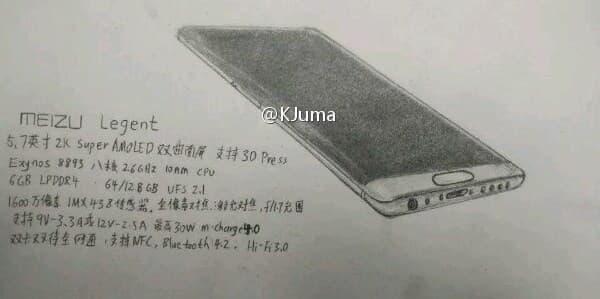 @KJuma
MEIZU Legent
5.7英寸 2K Super AMOLED 双曲面屏 支持3D Press
Exynos 8893 八核 2.6GHz 10nm CPU
6GB LPDDR4 · 64/128GB UFS 2.1
1600万像素 IMX 传感器. 全像素对焦. 激光对焦, F/1.7光圈
支持9V-3.3A或12V-2.5A 最高30W m-charge4.0
双卡双待全网通, 支持NFC, Bluetooth 4.2, Hi-Fi 3.0